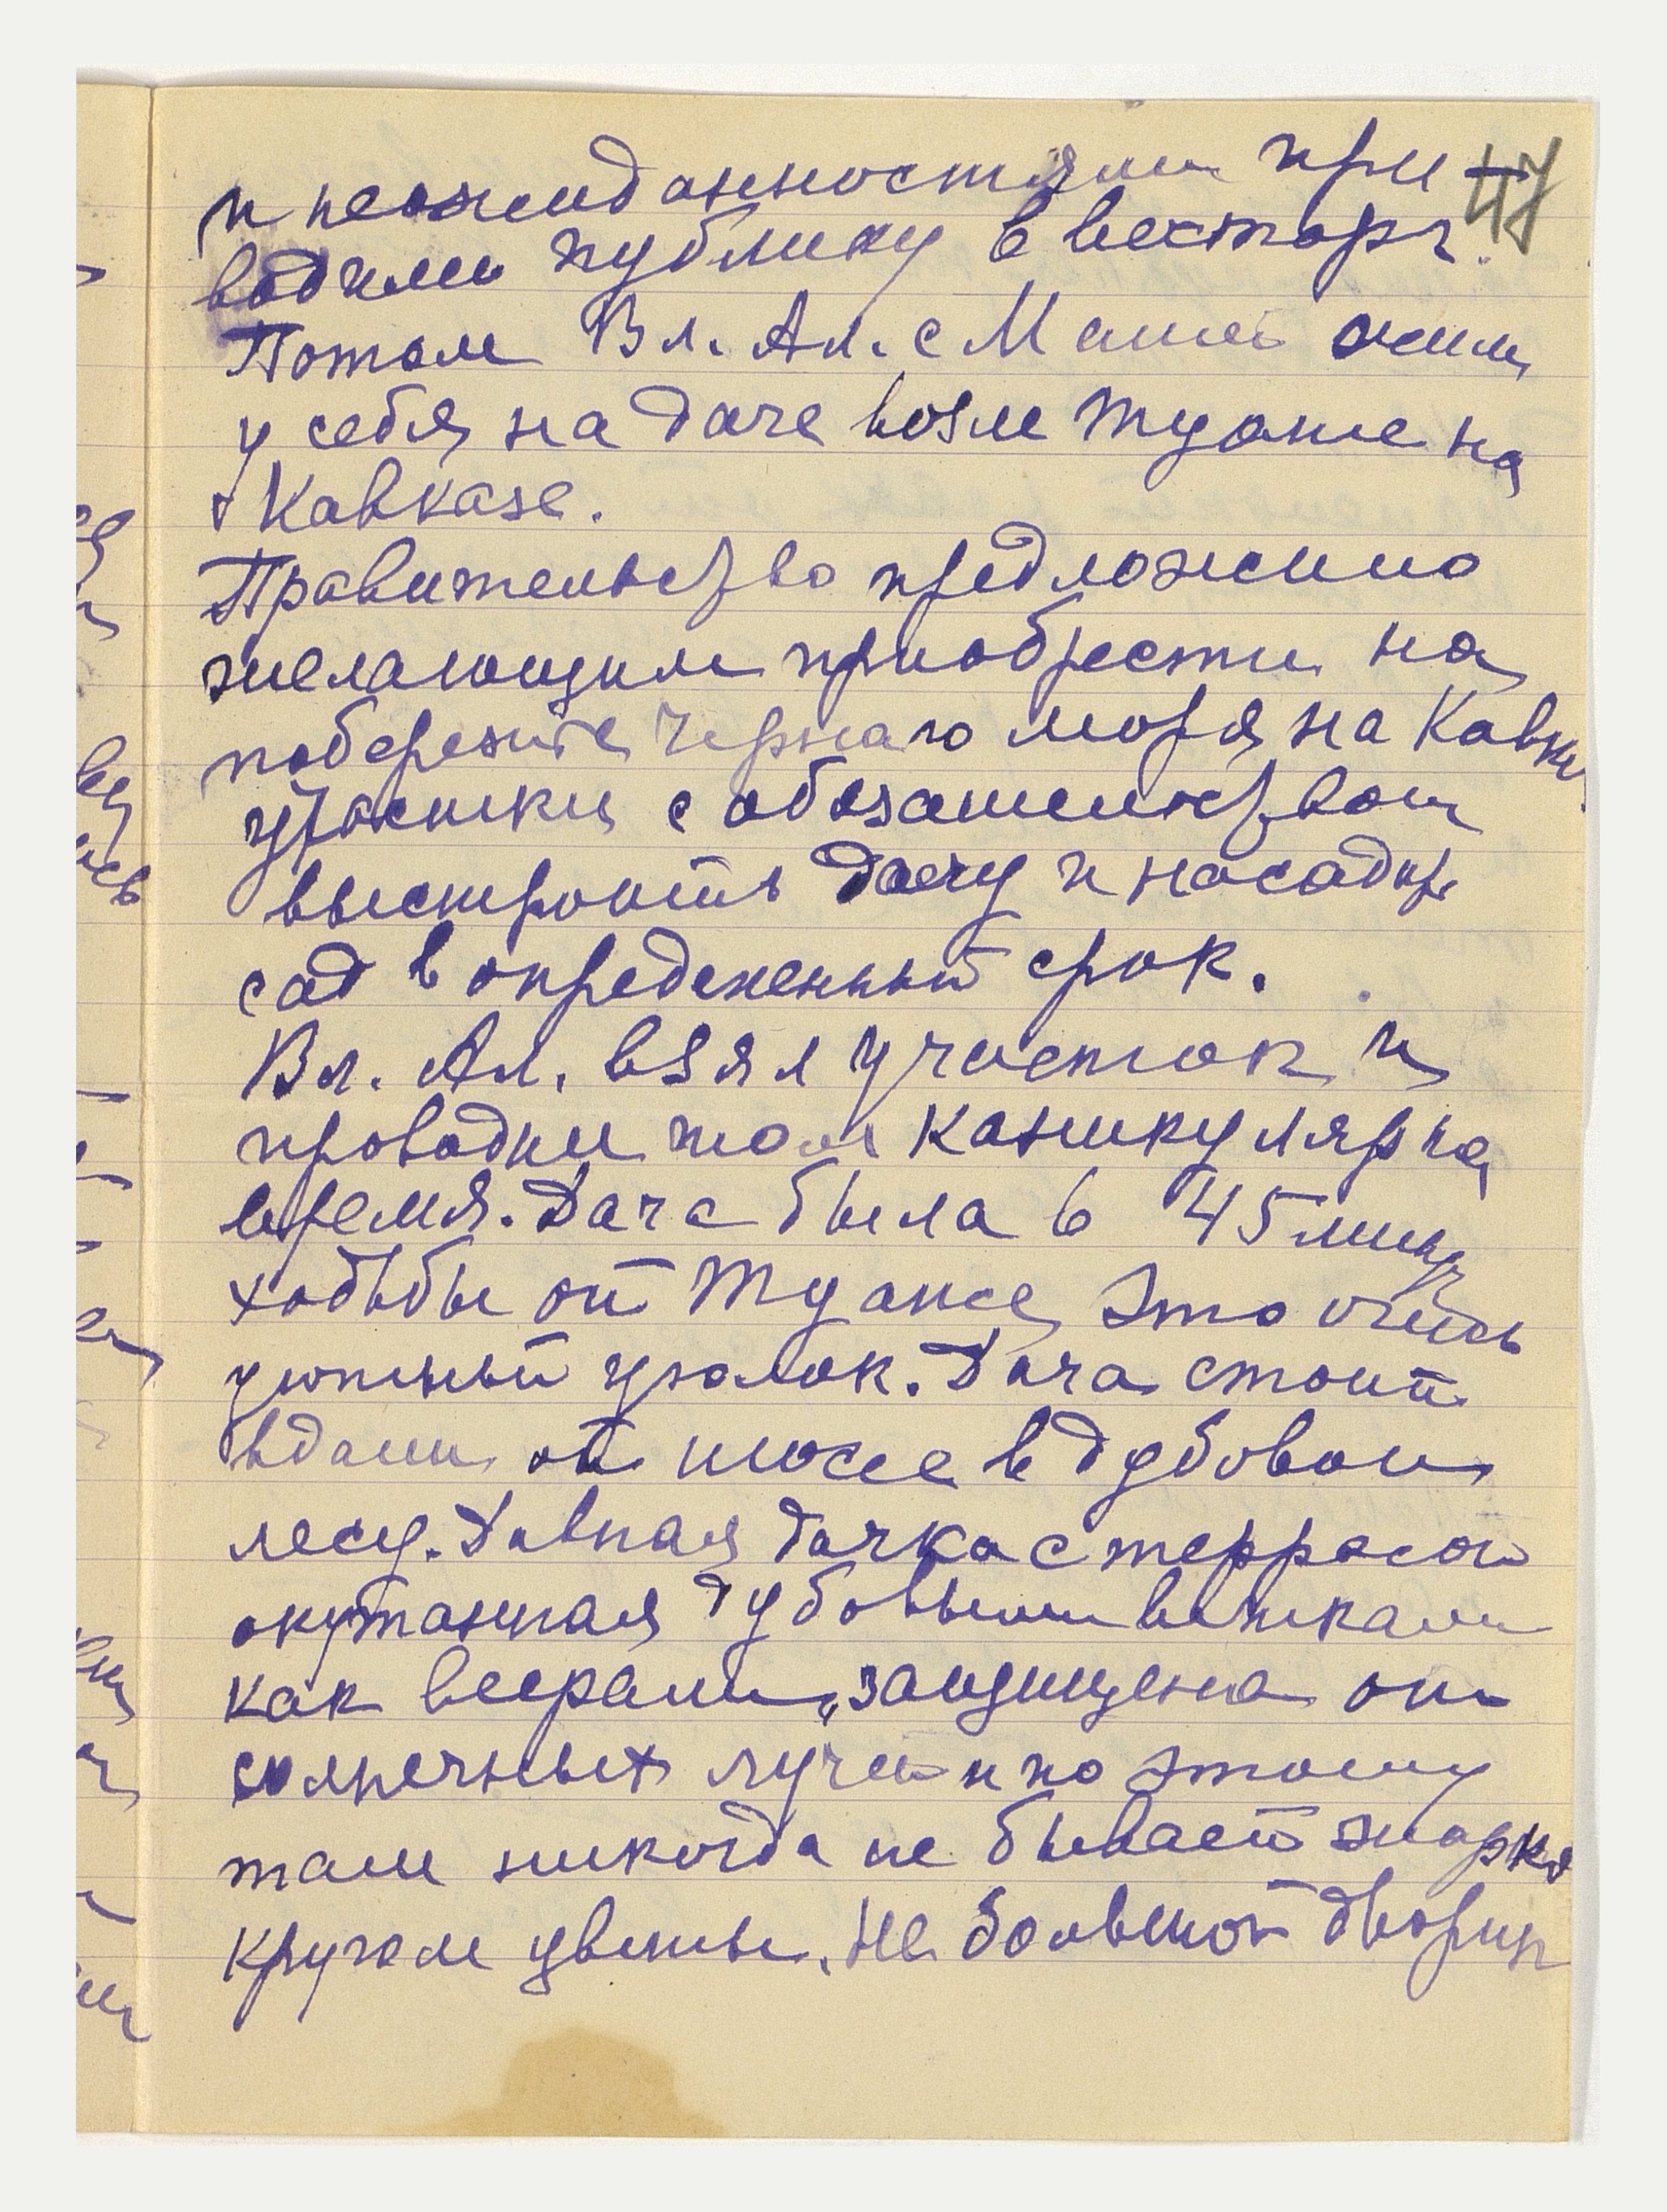 47
и неожиданностями при-
водили публику в восторг.
Потом Вл. Ал. с Машей жили
у себя на даче возле Туапсе на
Кавказе.
Правительство предложило
желающим приобрести на
побережье Чернаго моря на Кавк.
участки с обязательством
выстроить дачу и насадить
сад в определенный срок.
Вл. Ал. взял участок и
проводил там каникулярна
время. Дача была в 45 мину
ходьбы от Туапсе, Это очень
уютный уголок. Дача стоит
вдали от шоссе в дубовом
лесу. Давная дачка с террасой
окутанная дубовыми ветками
как веерами, защищена от
солнечных лучей и по этому
там никогда не бывает жарко
кругом цветы. Не большой дворик